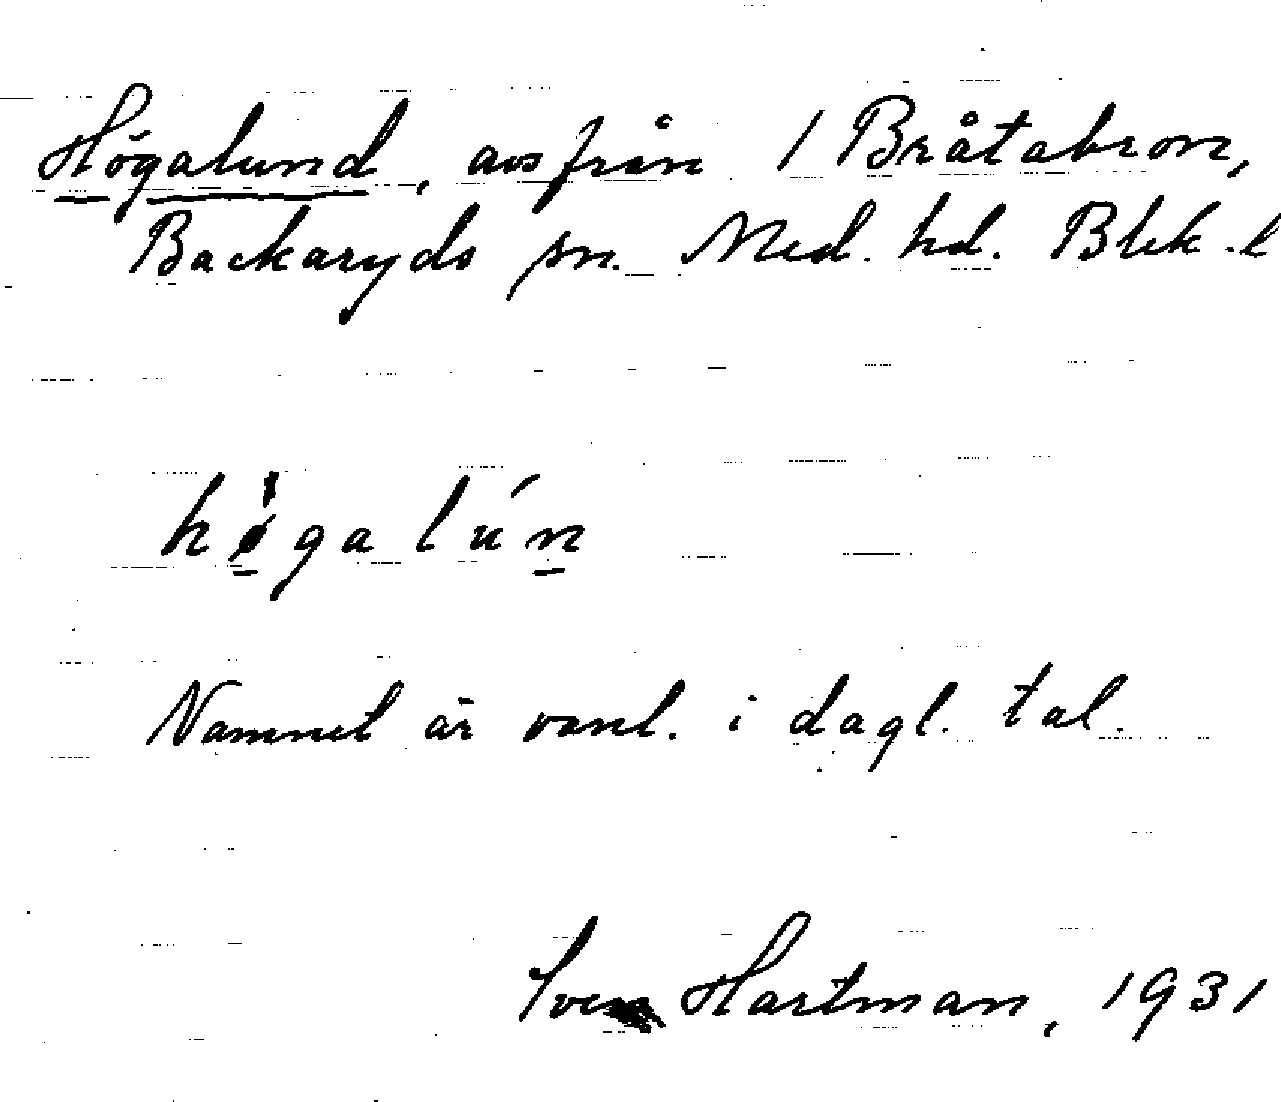 Högalund, avs från 1 Bråtabron,
Backaryds sn. Med. hd. Blek. l
høgalún
Namnet är vanl. i dagl. tal.
Sven Hartman, 1931